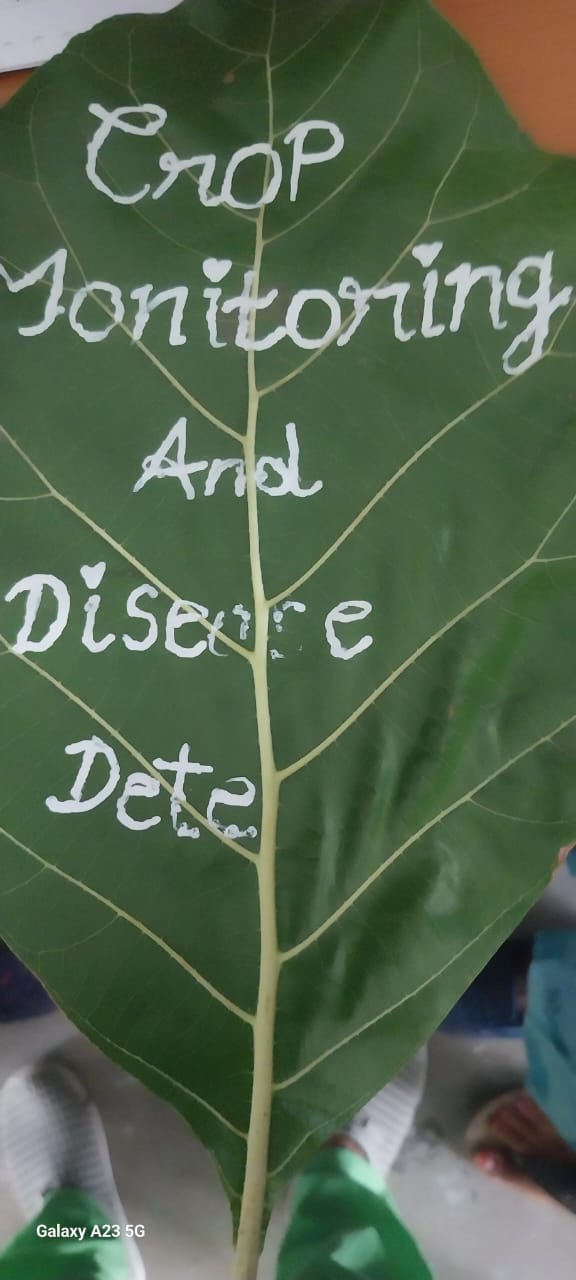 Crop
Monitoring
And
Disease
Dete
Galaxy A23 5G